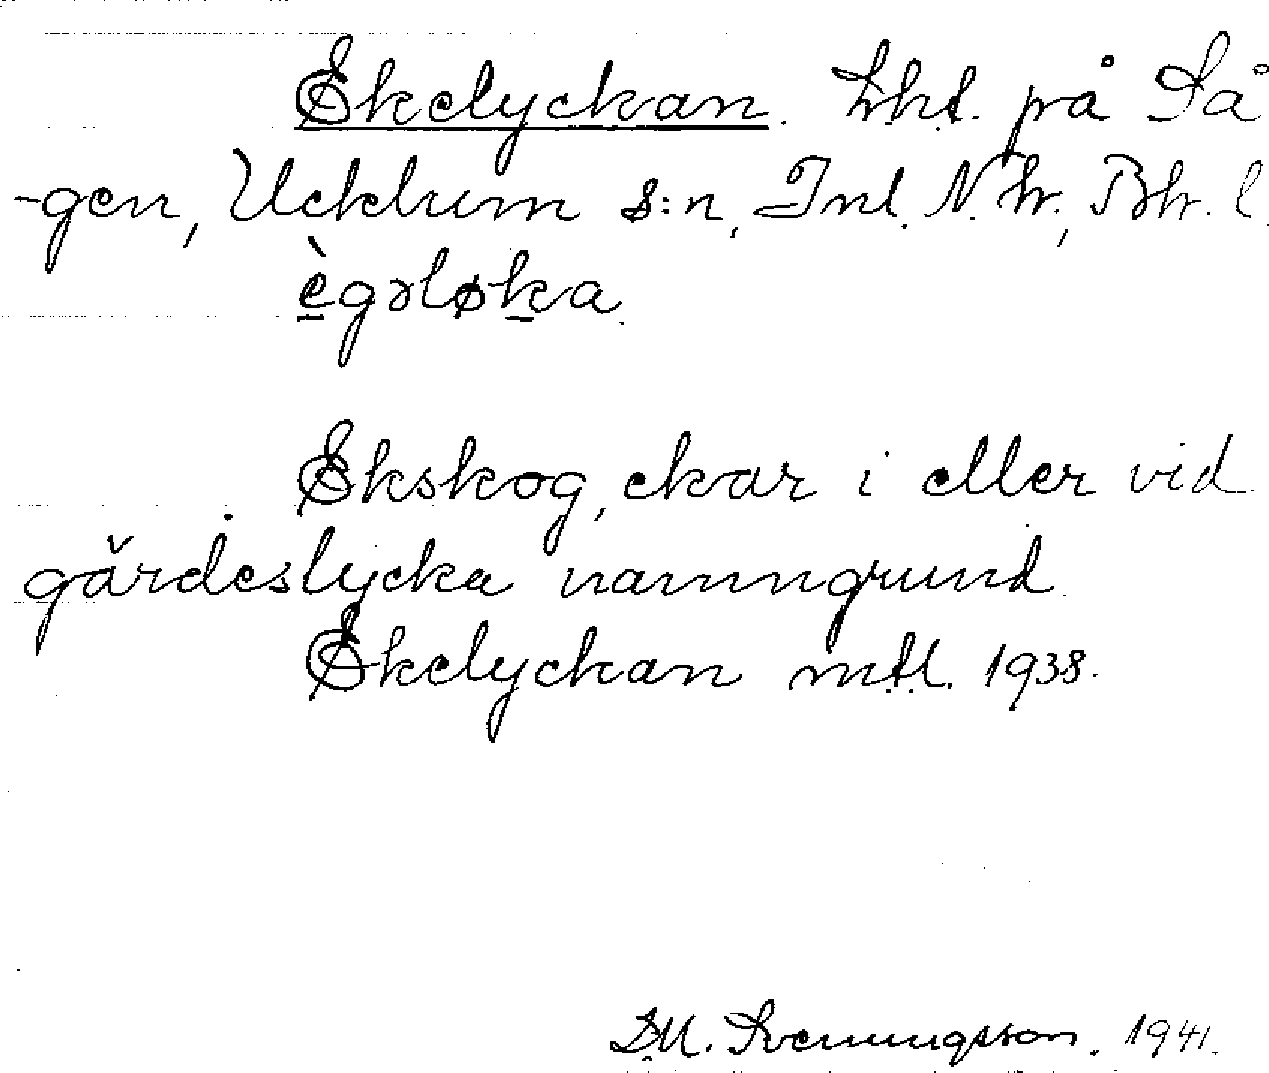 Ekelyckan. Lht. på Så
-gen, Ucklum s:n, Inl. N. hr., Bh. l.
ègəløka.
Ekskog, ekar i eller vid
gärdeslycka namngrund.
Ekelyckan mtl. 1938.
D.M. Svenningsson. 1941.